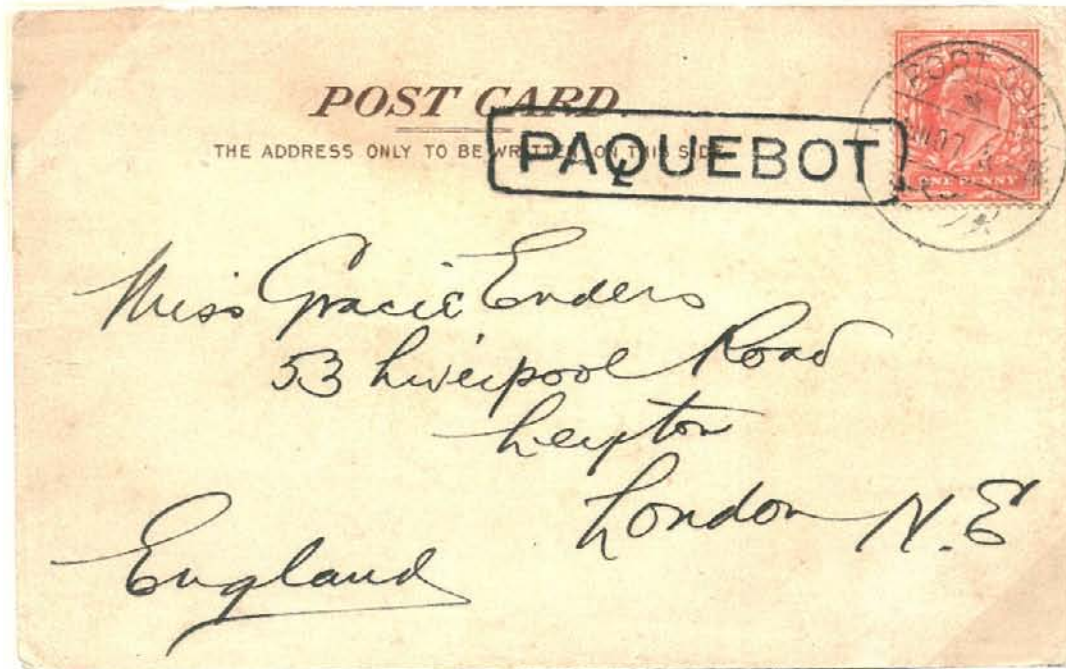 POST CARD.
THE ADDRESS ONLY TO BE WRITTEN ON THIS SIDE
PAQUEBOT
ONE PENNY
Miss Gracie Enders
53 Liverpool Road
Leyton
London N.E
England